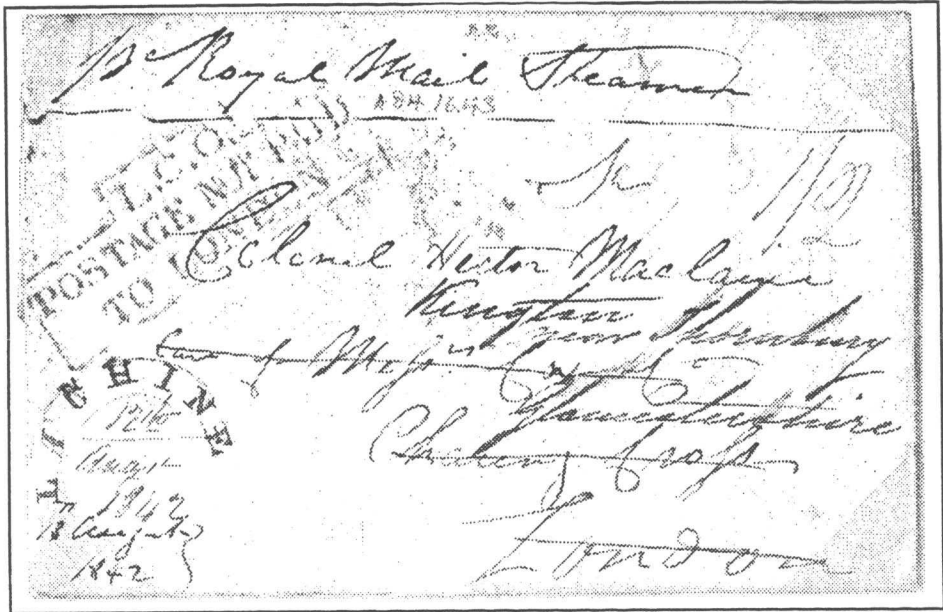 Pr Royal Mail Steamer
A84 1643
L.C.O.
POSTAGE NOT PAID
TO LONDON
1/2
Colonel Hector Maclaine
Kington
near Thornbury
Care of Messrs
Gloucestershire
Charing Cross
London
LACHINE
13th
Augt
1842
13 August
1842